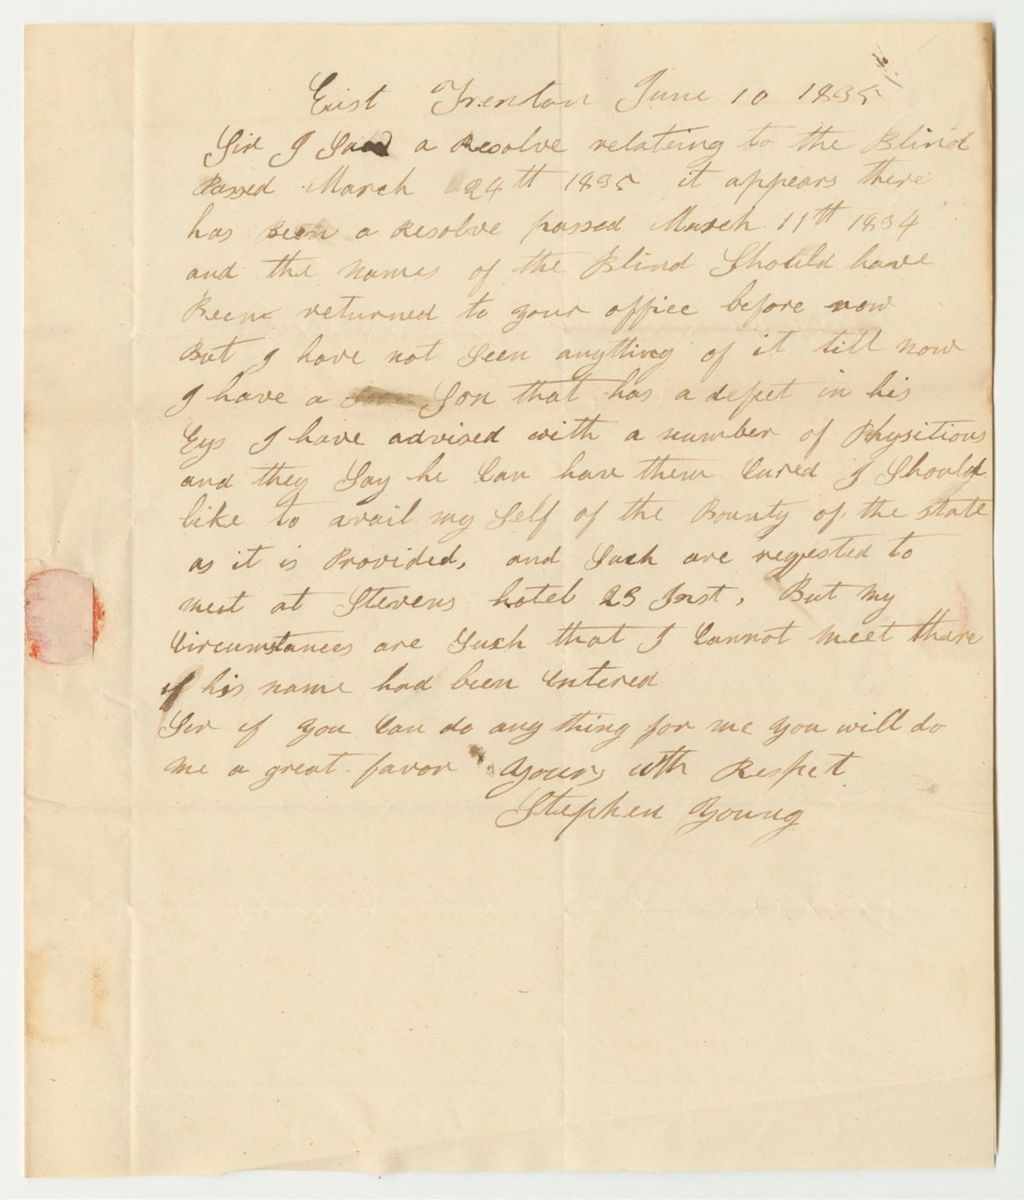 East Trenton June 10 1835
Sir I Saw a Resolve relateing to the Blind
Passed March 24th 1835 it appears there
has Been a Resolve passed March 11th 1834
and the names of the Blind Should have
Been returned to your office before now
But I have not Seen anything of it till now
I have a Son that has a defect in his
Eys I have advised with a number of Physitions
and they Say he Can have them Cured I Should
like to avail my Self of the Bounty of the State
as it is Provided, and Such are reqested to
meet at Stevens hotel 23 Inst, But my
Circumstances are Such that I Cannot meet thare
if his name had been Entered
Sir if you Can do any thing for me you will do
me a great favor Yours with Respet
Stephen Young